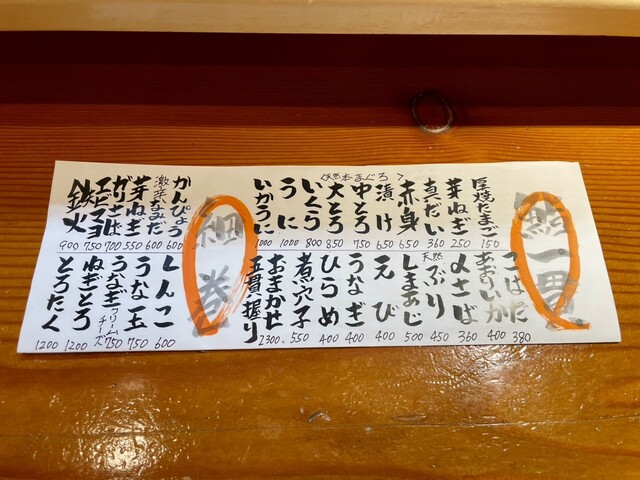 一貫
厚焼たまご 150
芽ねぎ 250
真だい 360
<天然本まぐろ>
赤身 650
漬け 650
中とろ 750
大とろ 850
いくら 800
うに 1000
いかうに 1000
こはだ 380
あおりいか 400
〆さば 360
天然ぶり 450
しまあじ 500
えび 400
うなぎ 400
ひらめ 400
煮穴子 550
おまかせ
五貫握り 2300
細巻
かんぴょう 600
激辛なみだ 600
芽ねぎ 550
ガリさば 700
エビマヨ 750
鉄火 900
しんこ 600
うな玉 750
うなぎクリームチーズ 750
ねぎとろ 1200
とろたく 1200